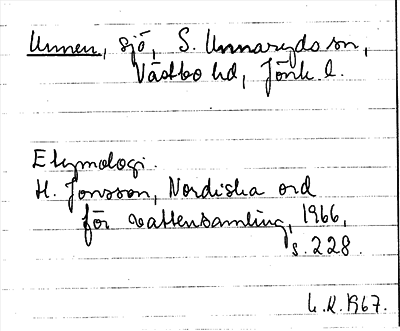 Unnen, sjö, S. Unnaryds sn,
Västbo hd, Jönk. l.
Etymologi.
H. Jonsson, Nordiska ord
för vattensamling, 1966,
s. 228.
1967.